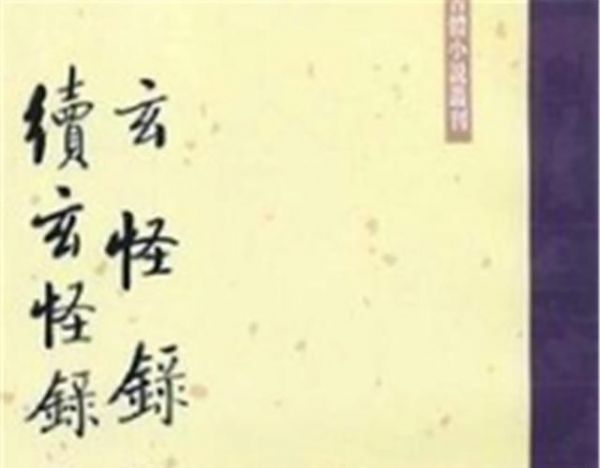 玄怪錄
續玄怪錄
小說叢刊